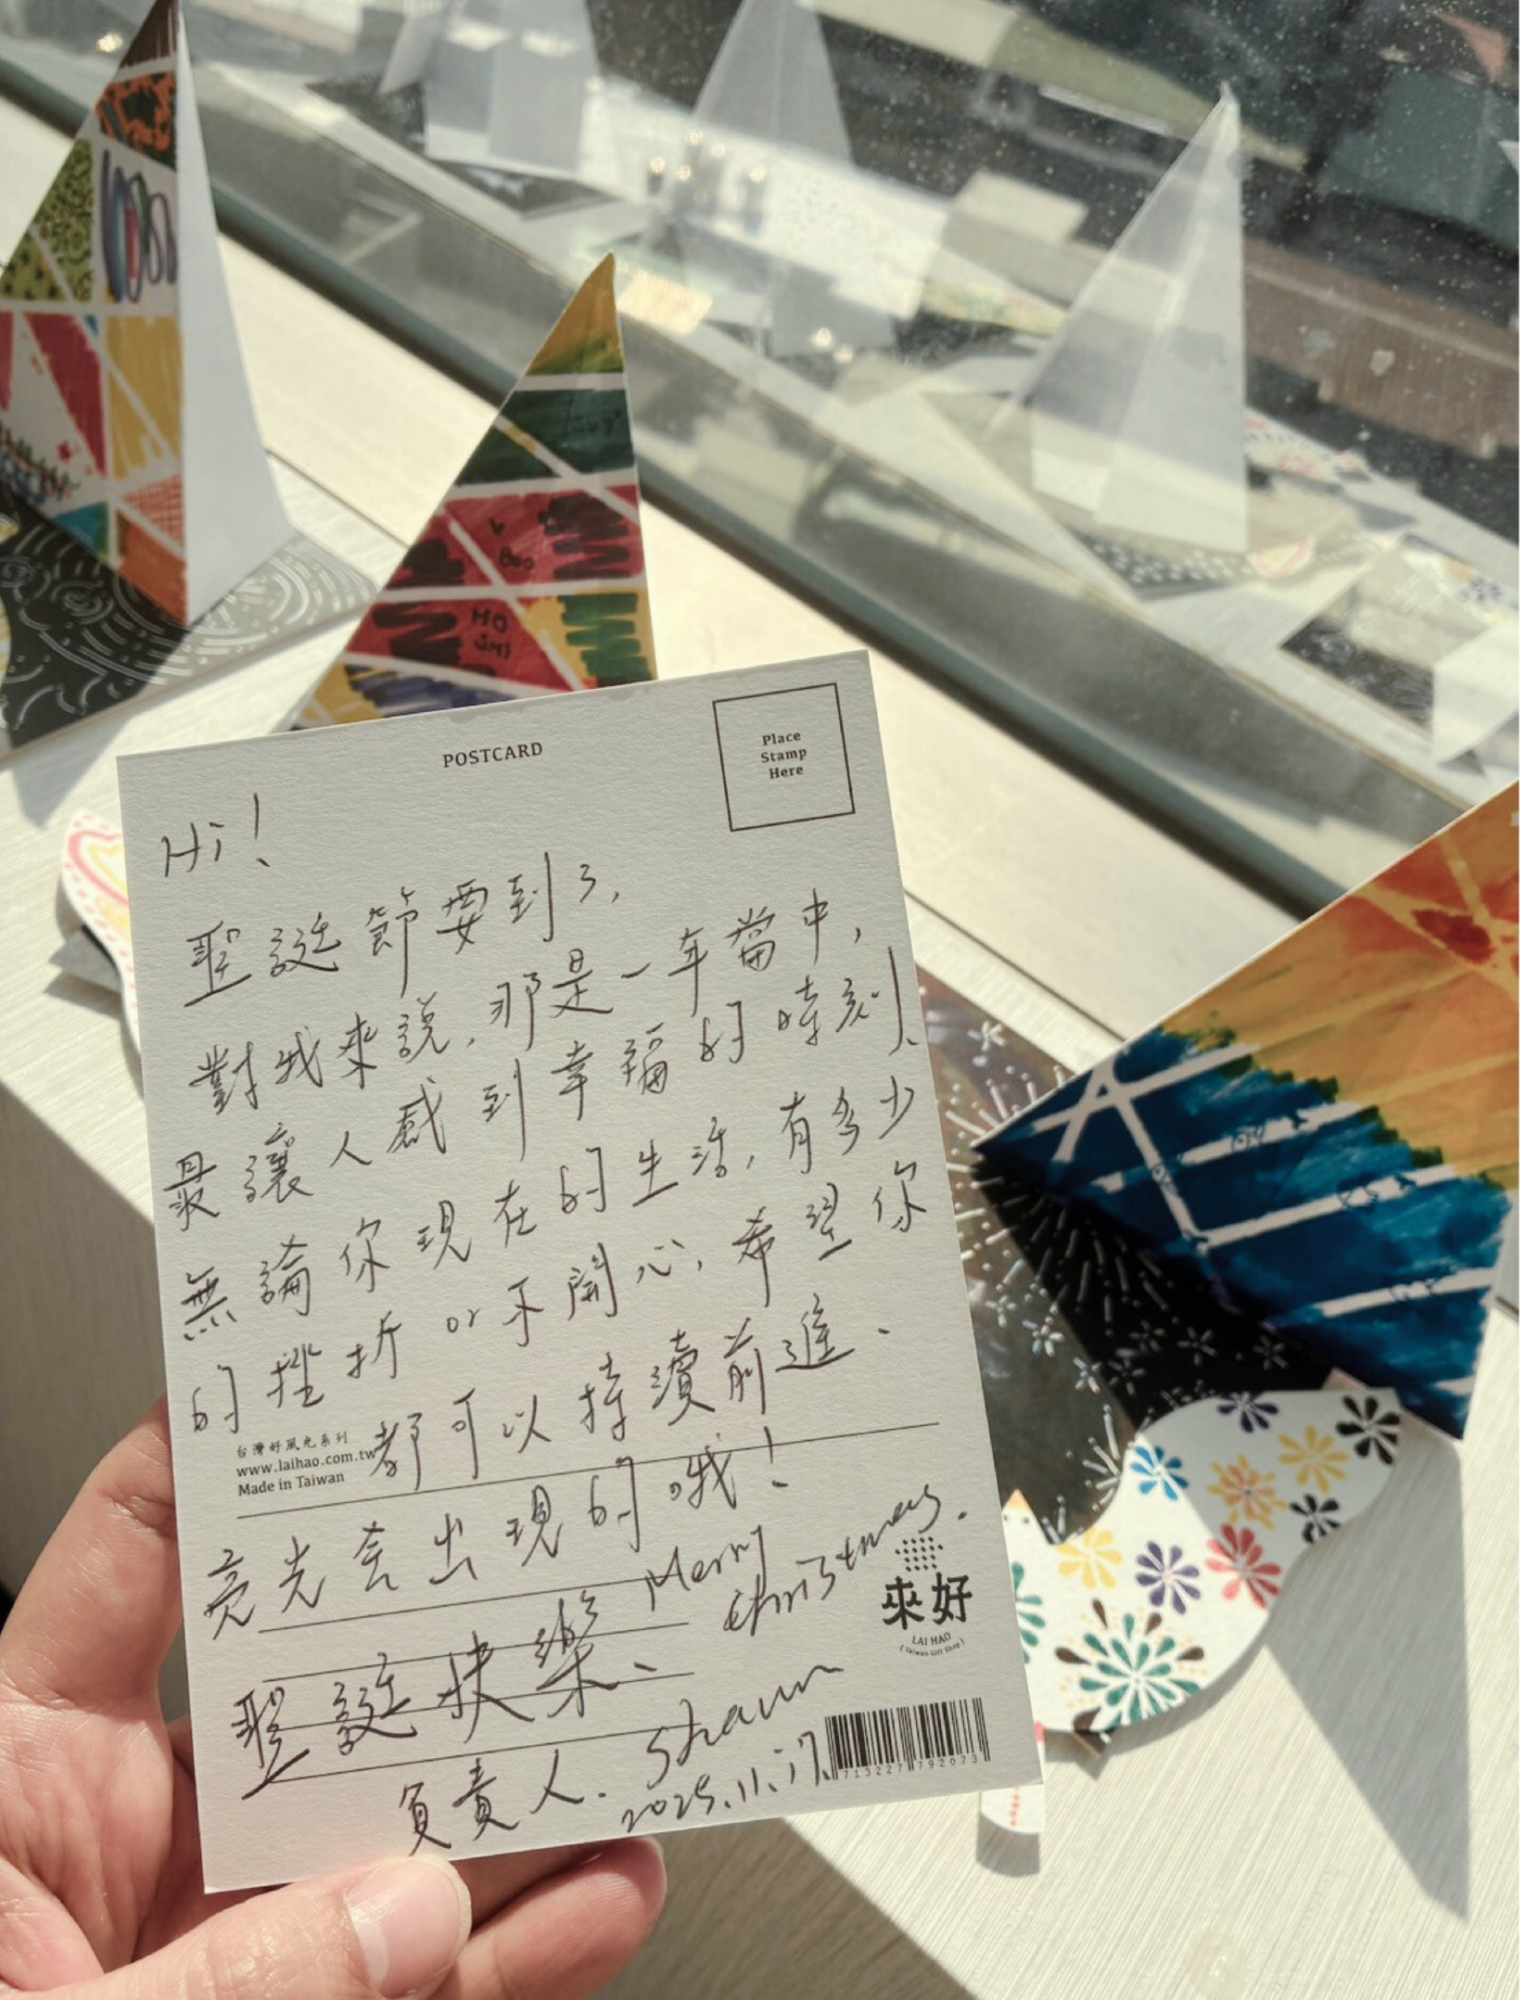 POSTCARD
Place
Stamp
Here
Hi!
聖誕節要到了,
對我來說,那是一年當中,
最讓人感到幸福的時刻、
無論你現在的生活,有多少
的挫折or不開心,希望你
都可以持續前進、
台灣好風光系列
www.laihao.com.tw
Made in Taiwan
亮光會出現的哦!
Merry
Christmas.
聖誕快樂、
來好
LAI HAO
(Taiwan Gift Shop)
負責人. Shaun
2025.11.17.
713227 792073
Boo